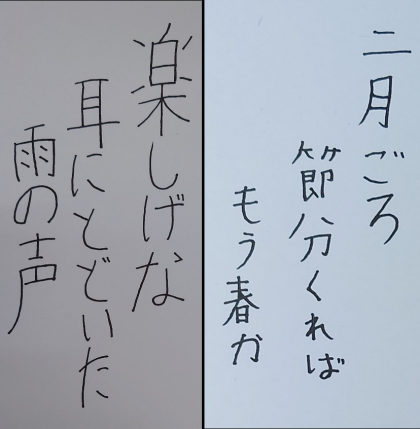 楽しげな
耳にとどいた
雨の声
二月ごろ
節分くれば
もう春か